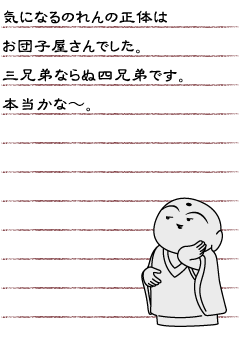 気になるのれんの正体は
お団子屋さんでした。
三兄弟ならぬ四兄弟です。
本当かな～。